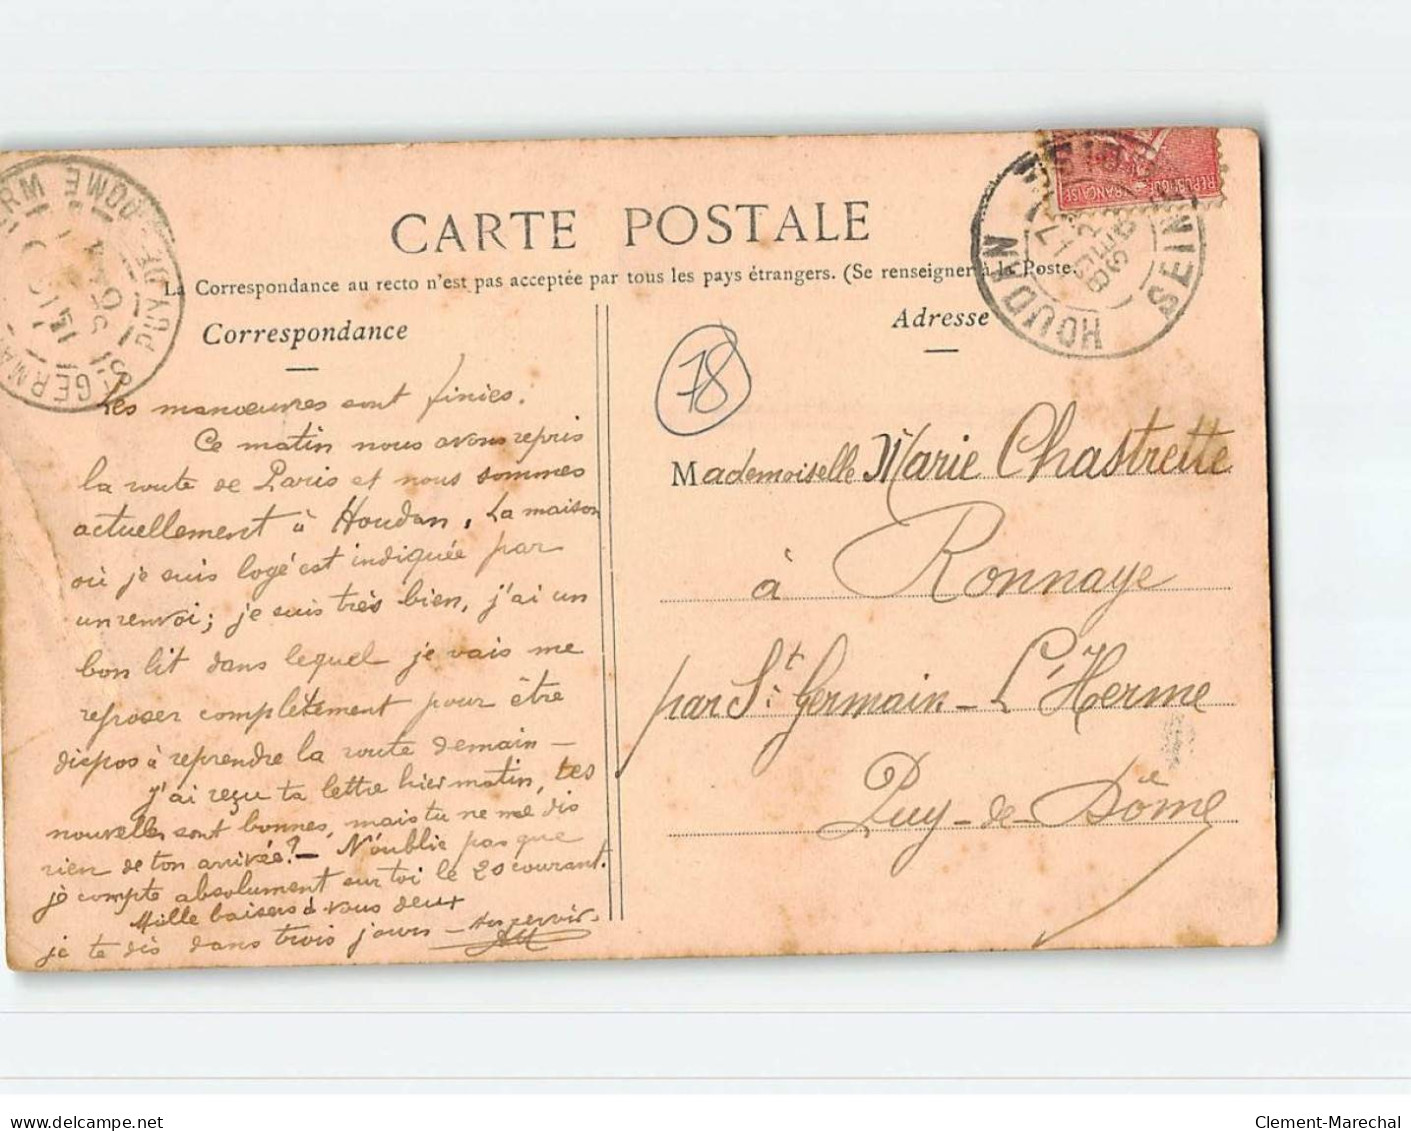 CARTE POSTALE
La Correspondance au recto n'est pas acceptée par tous les pays étrangers. (Se renseigner à la Poste.
Correspondance
Les manœuvres sont finies.
Ce matin nous avons repris
la route de Paris et nous sommes
actuellement à Houdan. La maison
où je suis logé est indiquée par
un renvoi; je suis très bien, j'ai un
bon lit dans lequel je vais me
reposer complètement pour être
dispos à reprendre la route demain —
J'ai reçu ta lettre hier matin, tes
nouvelles sont bonnes, mais tu ne me dis
rien de ton arrivée? — N'oublie pas que
je compte absolument sur toi le 20 courant.
Mille baisers à vous deux
je te dis dans trois jours — Au revoir.
Adresse
78
Mademoiselle Marie Chastrette
à Ronnaye
par St. Germain - L'Herme
Puy-de-Dôme
REPUBLIQUE FRANÇAISE
HOUDAN
SEINE
OISE
PUY-DE-DOME
ST GERMA